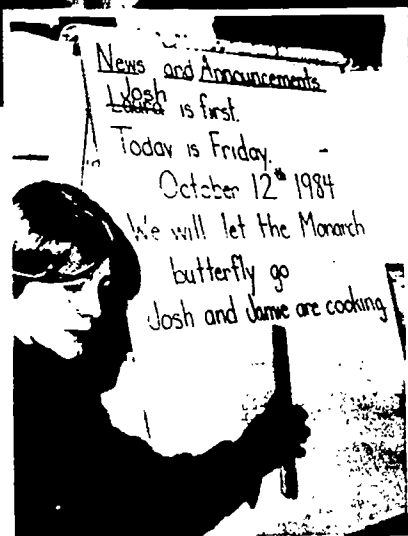 News and Announcements
Josh
Laura is first.
Today is Friday.
October 12th 1984
We will let the Monarch
butterfly go
Josh and Jamie are cooking